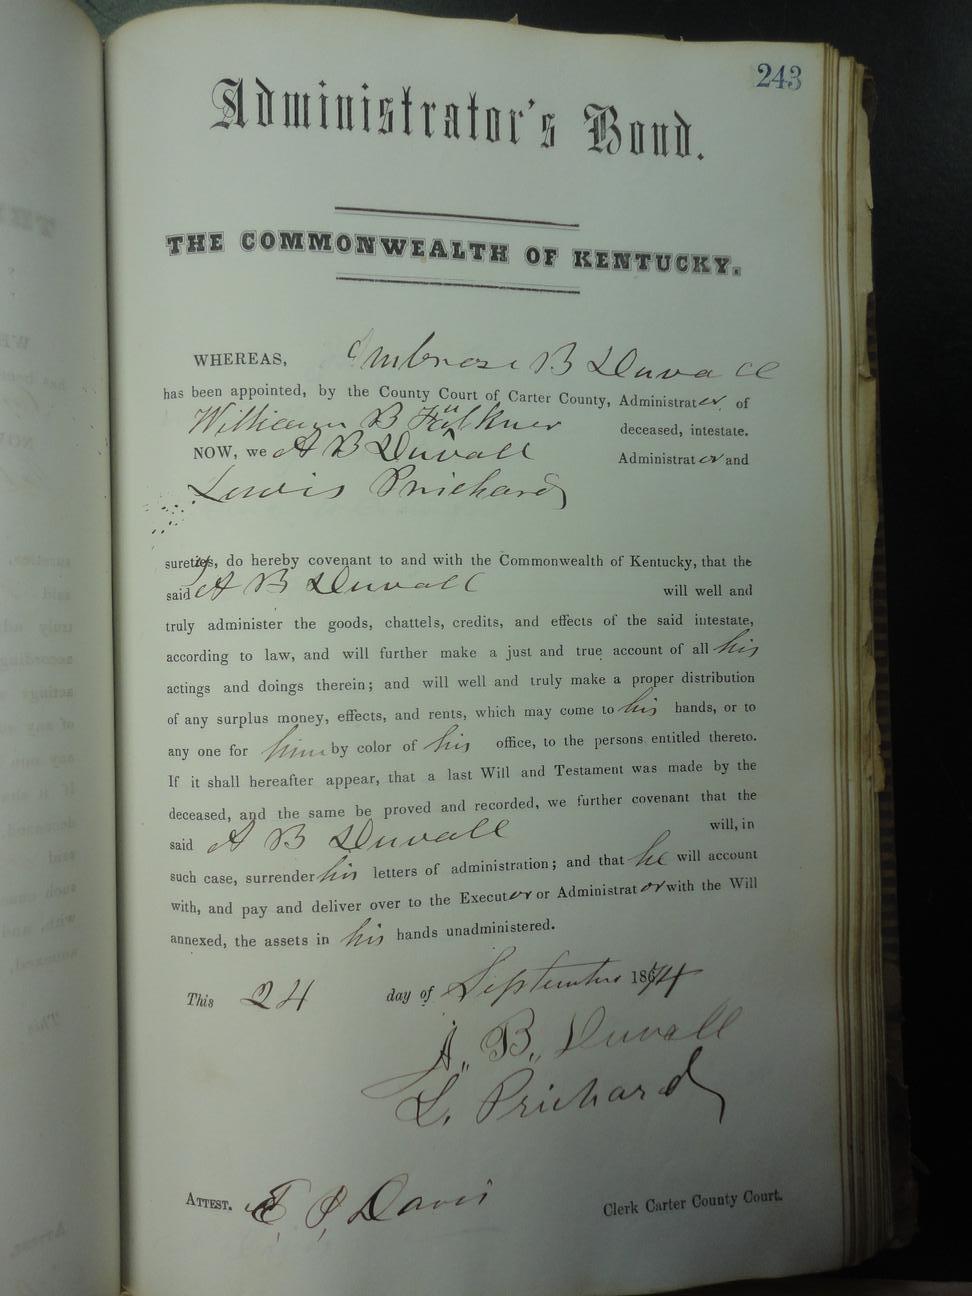 243
Administrator's Bond.
THE COMMONWEALTH OF KENTUCKY.
WHEREAS, Ambrose B Duvall
has been appointed, by the County Court of Carter County, Administrator of
William B Faulkner deceased, intestate.
NOW, we A B Duvall Administrator and
Lewis Prichard
sureties, do hereby covenant to and with the Commonwealth of Kentucky, that the
said A B Duvall will well and
truly administer the goods, chattels, credits, and effects of the said intestate,
according to law, and will further make a just and true account of all his
actings and doings therein; and will well and truly make a proper distribution
of any surplus money, effects, and rents, which may come to his hands, or to
any one for him by color of his office, to the persons entitled thereto.
If it shall hereafter appear, that a last Will and Testament was made by the
deceased, and the same be proved and recorded, we further covenant that the
said A B Duvall will, in
such case, surrender his letters of administration; and that he will account
with, and pay and deliver over to the Executor or Administrator with the Will
annexed, the assets in his hands unadministered.
This 24 day of September 1874
A. B. Duvall
L. Prichard
ATTEST. Davis Clerk Carter County Court.